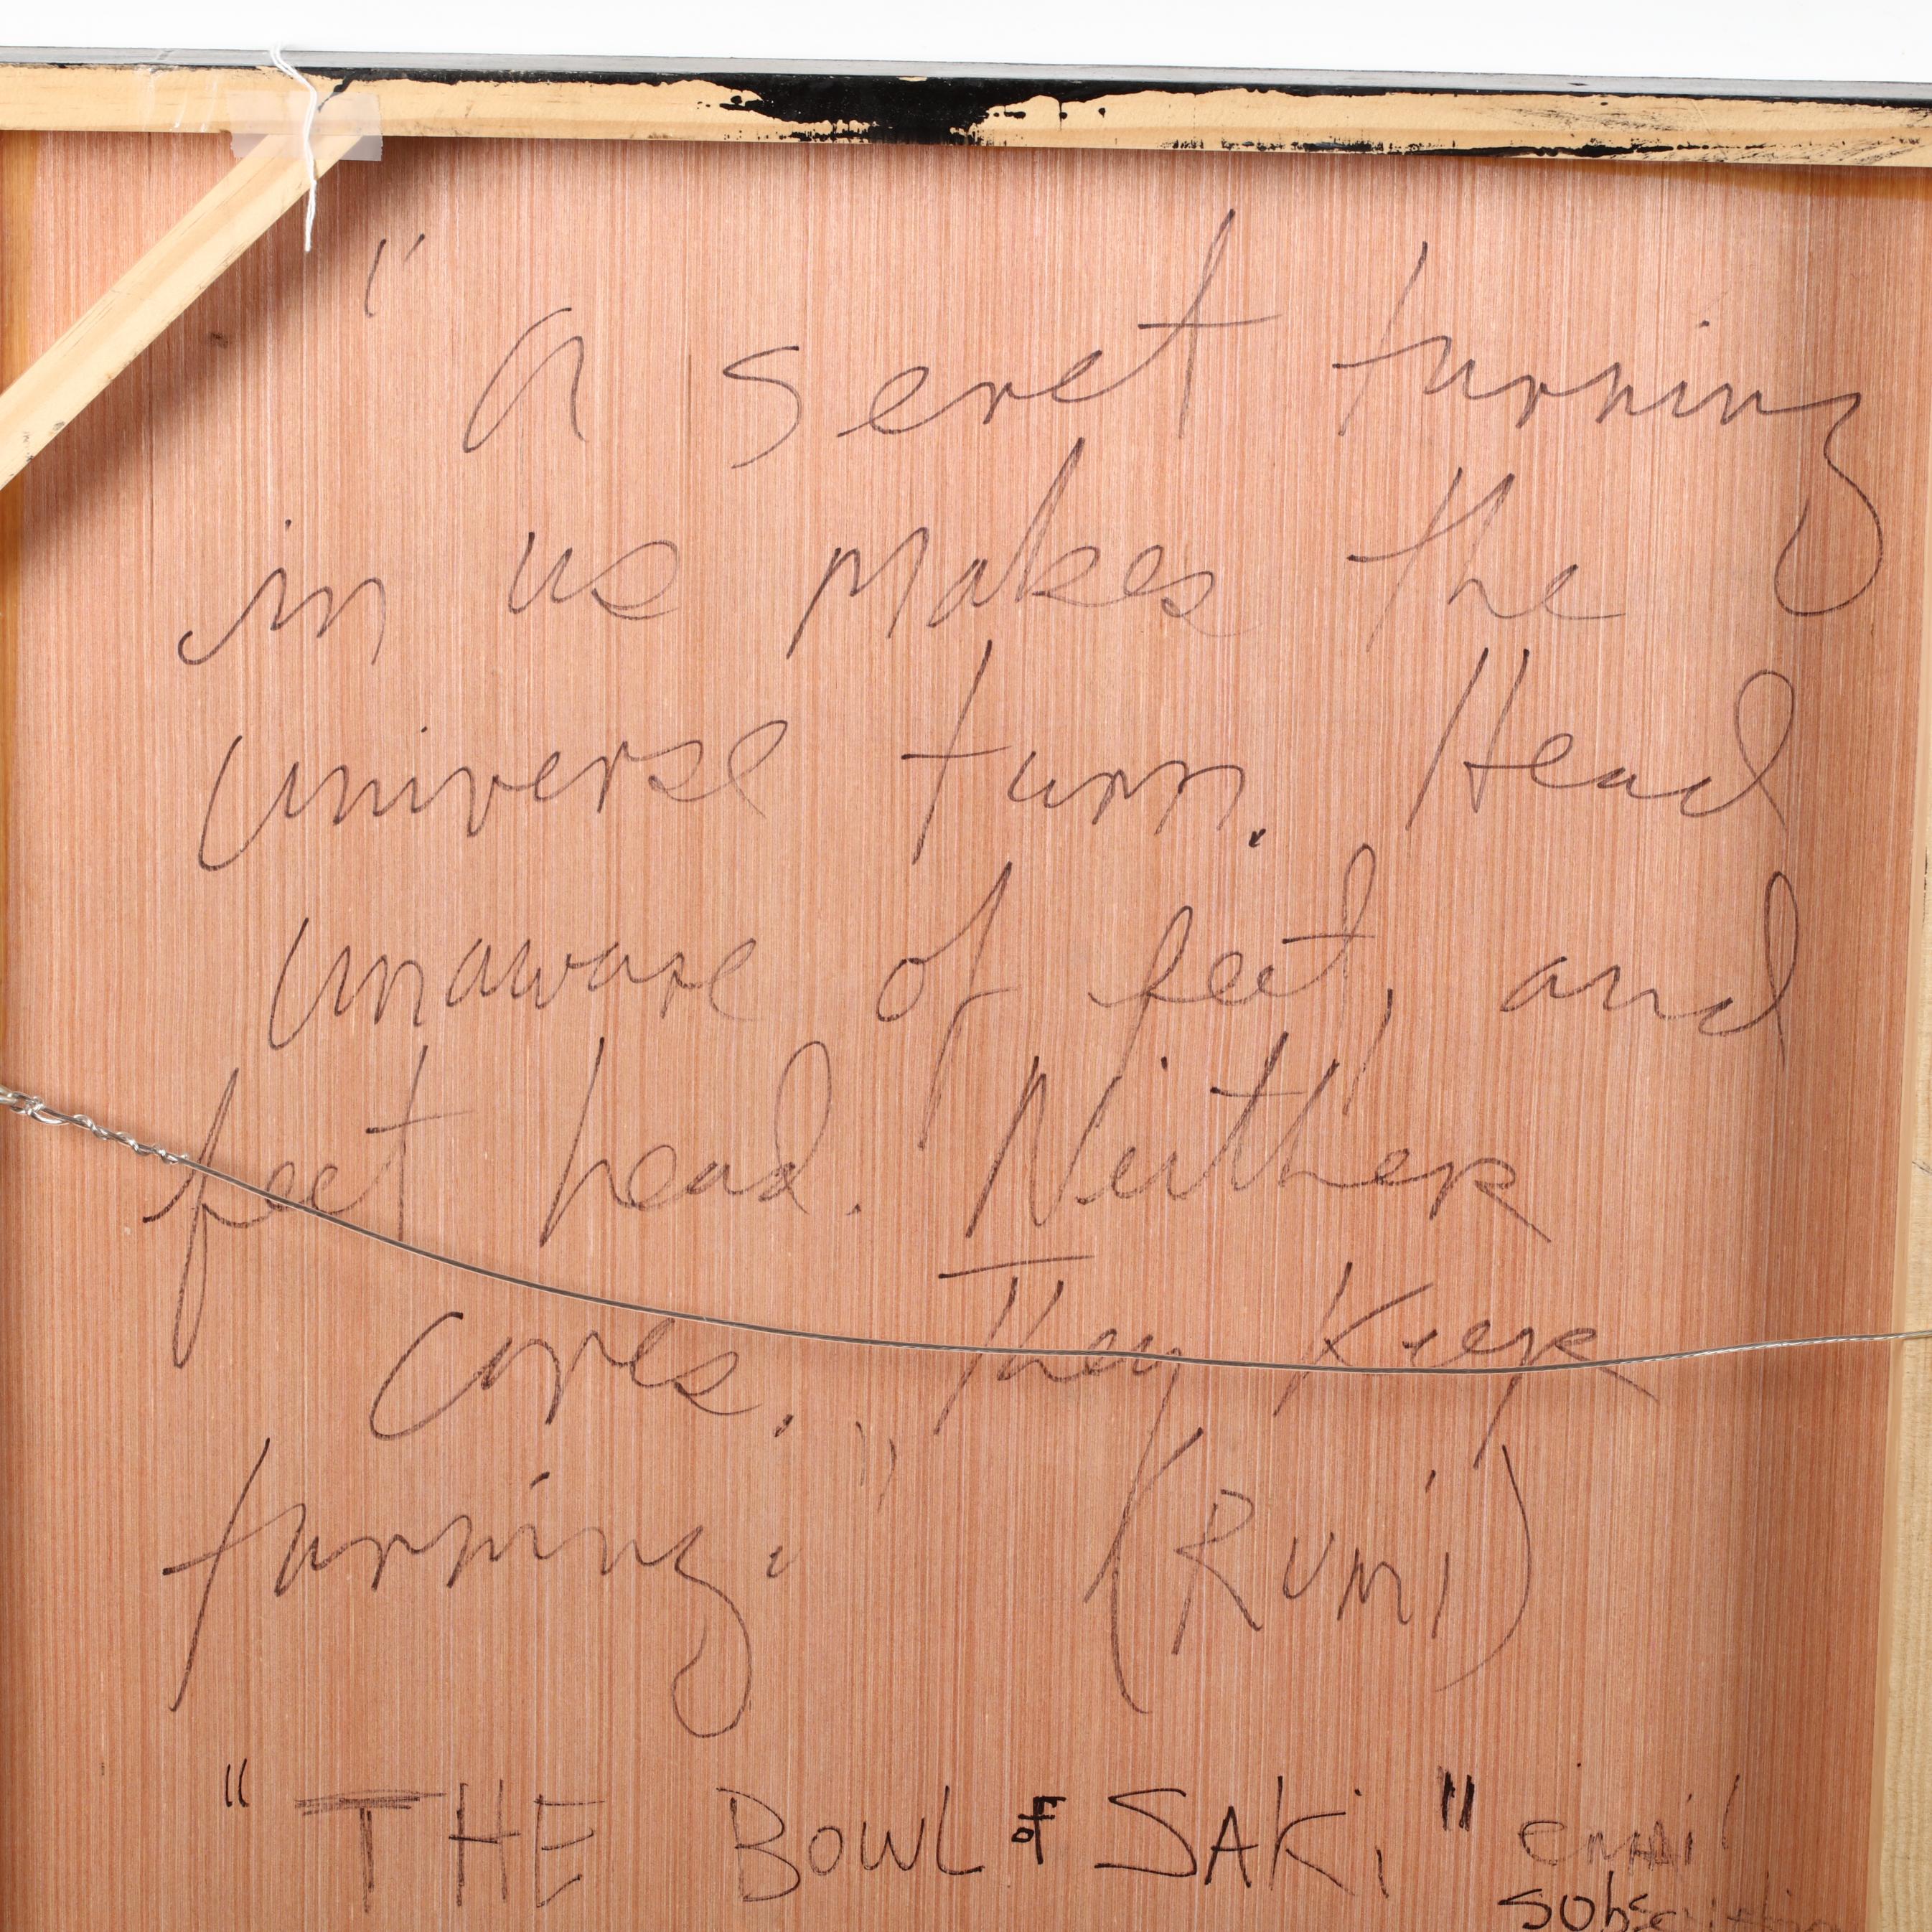 "a secret turning
in us makes the
universe turn. Head
unaware of feet, and
feet head. Neither
cares. They Keep
turning." (RUMi)
"THE BOWL OF SAKi" EMAil
SUbscription